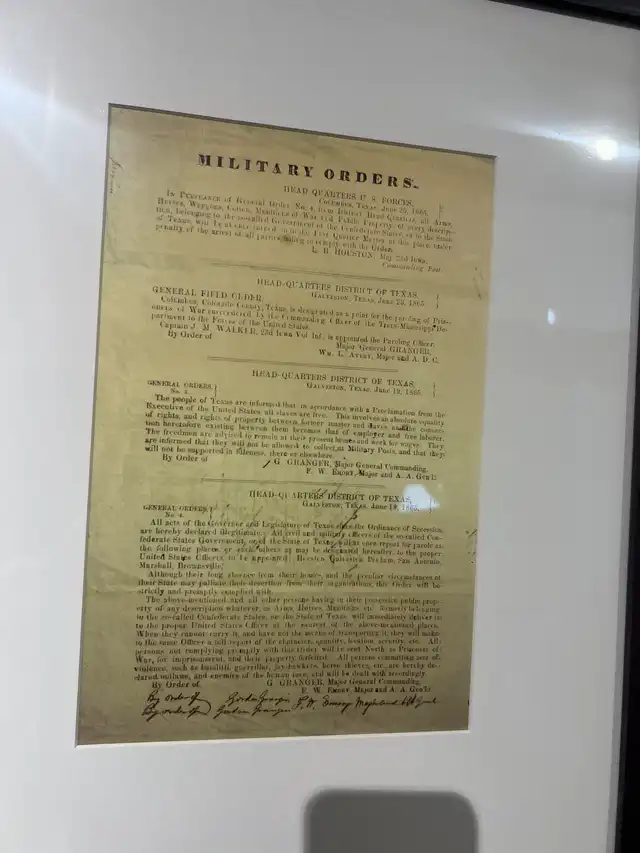 MILITARY ORDERS.
HEAD QUARTERS U. S. FORCES,
COLUMBUS, TEXAS, June 25, 1865.
IN PURSUANCE of General Order No. 4, from District Head Quarters, all Arms,
Horses, Waggons, Cotton, Munitions of War and Public Property, of every descrip-
tion, belonging to the so-called Government of the Confederate States, or to the State
of Texas, will be at once turned in to the Post Quarter Master at this place, under
penalty of the arrest of all parties failing to comply with the Order.
L. B. HOUSTON, Maj 23d Iowa,
Commanding Post.
HEAD-QUARTERS DISTRICT OF TEXAS,
GALVESTON, TEXAS, June 1865.
GENERAL FIELD ORDER.
Columbus, Colorado County, Texas, is designated as a point for the paroling of Pris-
oners of War surrendered by the Commanding Officer of the Trans-Mississippi De-
partment to the Forces of the United States.
Captain J. M. WALKER, 23d Iowa Vol Inf. is appointed the Paroling Officer.
By Order of
Major General GRANGER,
WM. L. AVERY, Major and A. D. C.
HEAD-QUARTERS DISTRICT OF TEXAS,
GALVESTON, TEXAS, June 19, 1865.
GENERAL ORDERS,
No. 3.
The people of Texas are informed that in accordance with a Proclamation from the
Executive of the United States all slaves are free. This involves an absolute equality
of rights, and rights of property between former master and slaves and the connec-
tion heretofore existing between them becomes that of employer and free laborer.
The freedmen are advised to remain at their present homes and work for wages. They
are informed that they will not be allowed to collect at Military Posts, and that they
will not be supported in idleness, there or elsewhere.
By Order of
G GRANGER, Major General Commanding.
F. W. EMORY, Major and A. A. Gen'l
HEAD-QUARTERS DISTRICT OF TEXAS,
GALVESTON, TEXAS, June 19, 1865.
GENERAL ORDERS,
No. 4.
All acts of the Governor and Legislature of Texas since the Ordinance of Secession,
are hereby declared illegitimate. All civil and military officers of the so-called Con-
federate States Government, or of the State of Texas, will at once report for parole at
the following places, or such others as may be designated hereafter, to the proper
United States Officers, to be appointed: Houston, Galveston, Bonham, San Antonio,
Marshall, Brownsville.
Although their long absence from their homes, and the peculiar circumstances of
their State may palliate their desertion from their organizations, this Order will be
strictly and promptly complied with.
The above-mentioned and all other persons having in their possession public prop-
erty of any description whatever, as Arms, Horses, Munitions, etc. formerly belonging
to the so-called Confederate States, or the State of Texas, will immediately deliver it
to the proper United States Officer at the nearest of the above-mentioned places.
When they cannot carry it, and have not the means of transporting it, they will make
to the same Officer a full report of the character, quantity, location, security, etc. All
persons not complying promptly with this order will be sent North as Prisoners of
War, for imprisonment, and their property forfeited. All persons committing acts of
violence, such as banditti, guerrillas, jay-hawkers, horse thieves, etc., are hereby de-
clared outlaws, and enemies of the human race, and will be dealt with accordingly.
By Order of
G GRANGER, Major General Commanding.
F. W. EMORY, Major and A. A Gen'l
By order of Gordon Granger
By order of Gordon Granger F. W. Emory Major and AA Genl